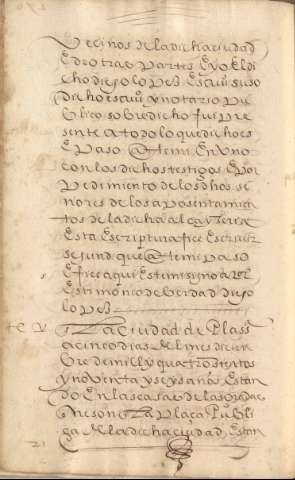 Vecinos de la dicha ciudad
E de otras partes E yo El di
cho diego lopez Escriu suso
dicho escriu y notario pu
blico sobredicho fui pre
sente a todo lo que dicho es
E paso ante mi En Vno
con los dichos testigos E por
pedimiento de los dhos se
nores de los aposentamien
tos de la dicha alcauteria
Esta Escriptura fice Escreuir
segund que ante mi paso
E fice aqui Este mi signo a tal
En testimonio de berdad diego
lopez
En la ciudad de Plasª
a cinco dias del mes de
bre de mill y quatrosientos
y noventa y seys años Estan
do En las casas de
meson En la plaça Publi
ca de la dicha ciudad, Estan